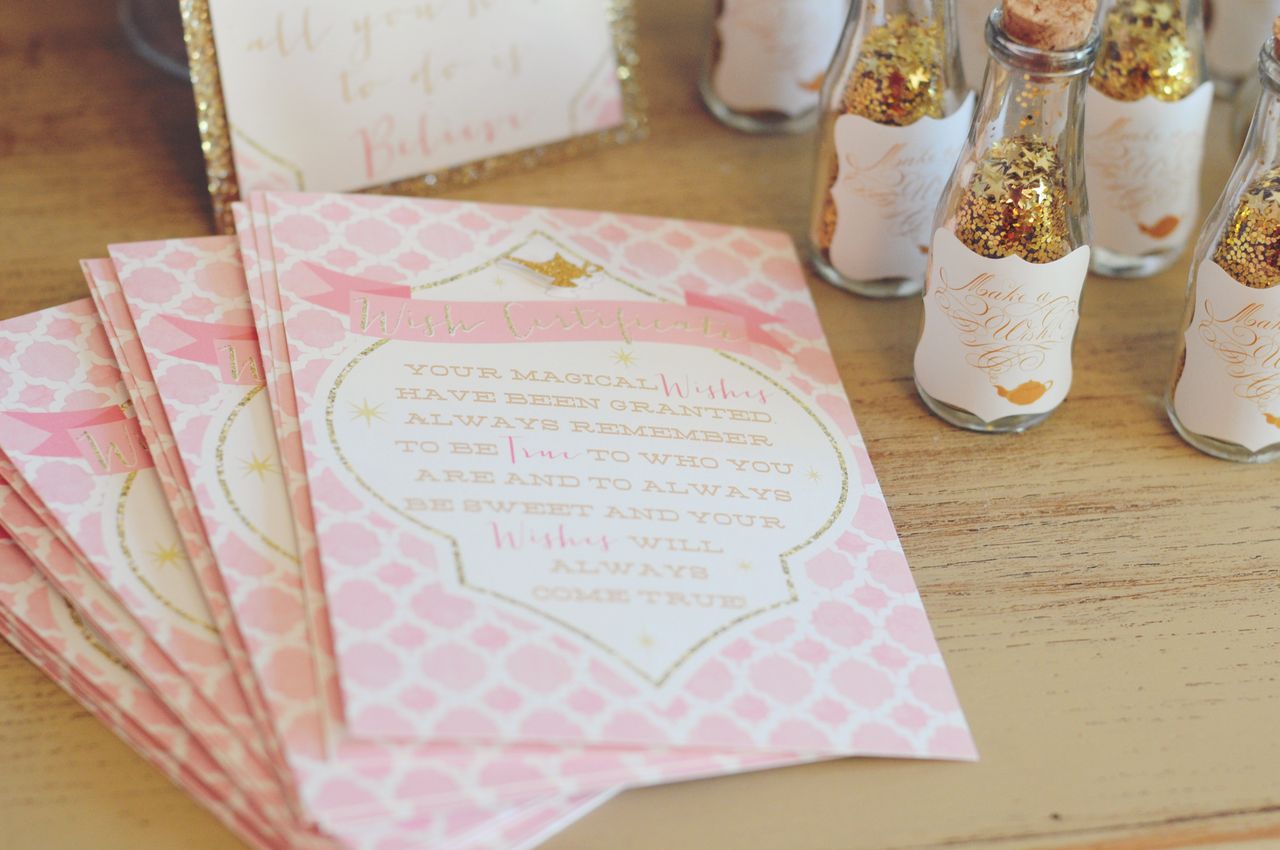 all you
to do is
Believe
Wish Certificate
YOUR MAGICAL Wishes
HAVE BEEN GRANTED.
ALWAYS REMEMBER
TO BE True TO WHO YOU
ARE AND TO ALWAYS
BE SWEET AND YOUR
Wishes WILL
ALWAYS
COME TRUE!
Make a
Wish
Make a
Wish
Make a
Wish
Make a
Wish